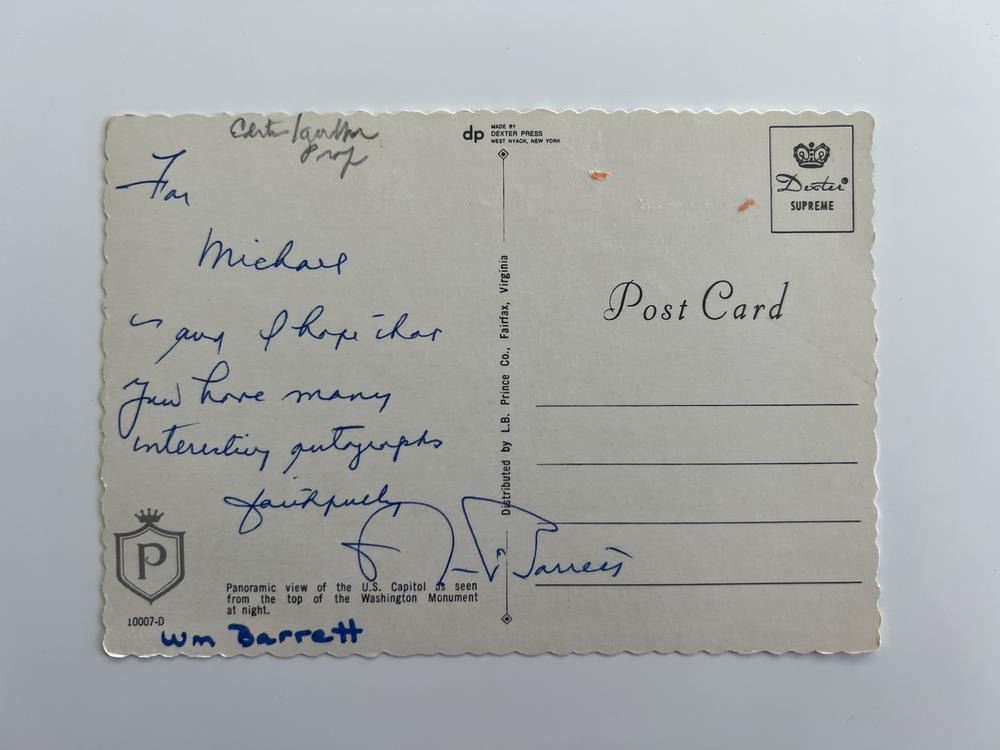 For
Michael
and I hope that
you have many
interesting autographs
faithfully
Barrett
Panoramic view of the U.S. Capitol as seen
from the top of the Washington Monument
at night.
P
10007-D
Wm Barrett
dp MADE BY
DEXTER PRESS
WEST NYACK, NEW YORK
Distributed by L.B. Prince Co., Fairfax, Virginia
Dexter®
SUPREME
Post Card